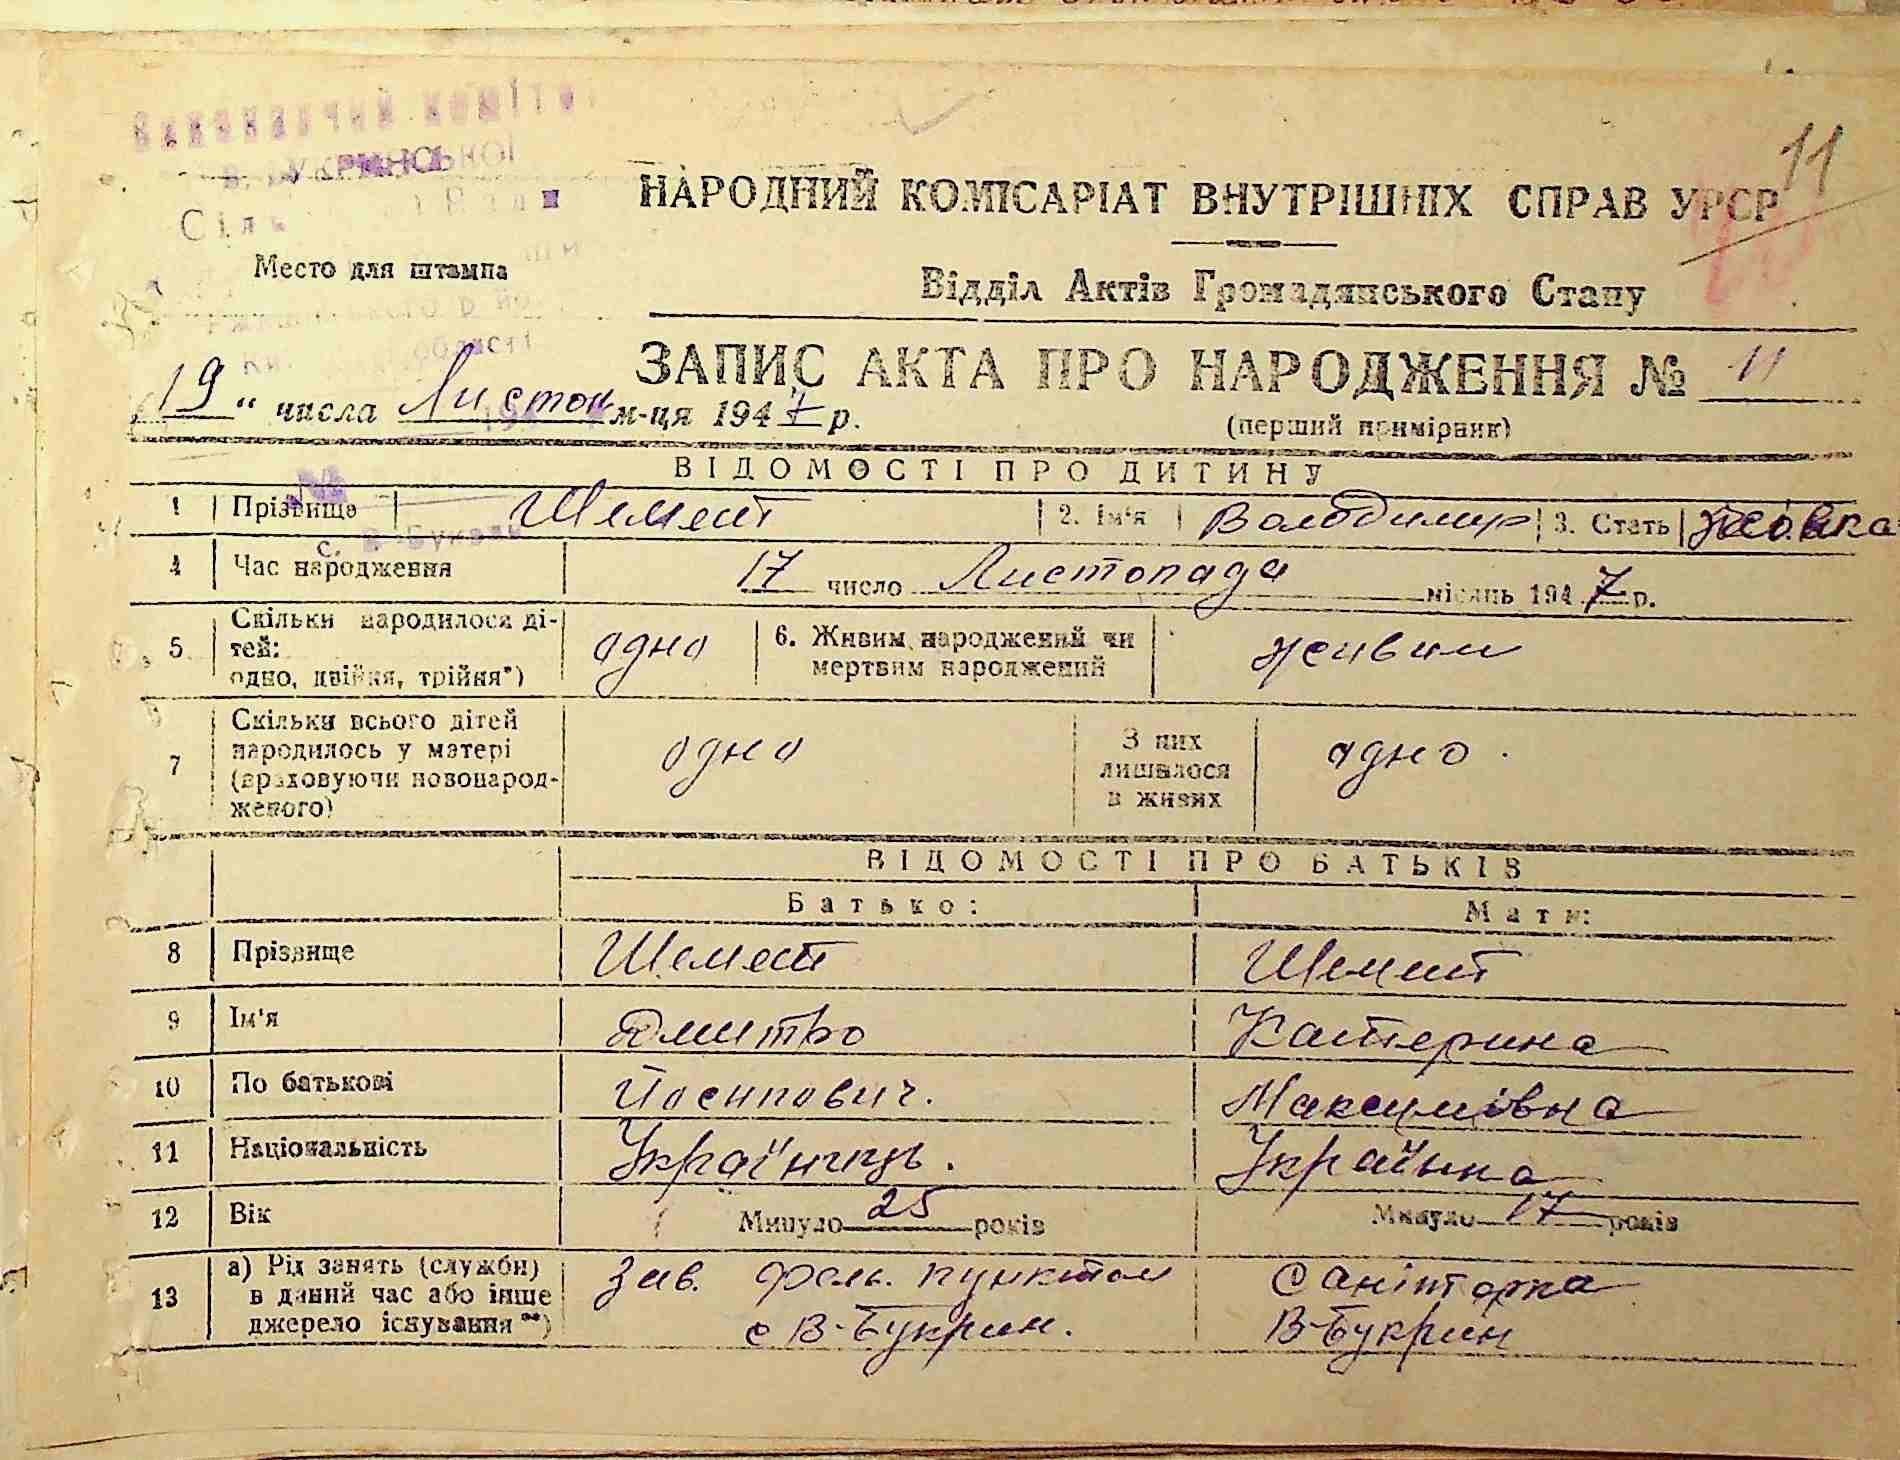 11
НАРОДНИЙ КОМІСАРІАТ ВНУТРІШНІХ СПРАВ УРСР
Место для штампа
Відділ Актів Громадянського Стану
області
ЗАПИС АКТА ПРО НАРОДЖЕННЯ № 11
„19“ числа Листоп м-ця 1947 р.
(перший примірник)
ВІДОМОСТІ ПРО ДИТИНУ
1 Прізвище Шемест 2. Ім'я Володимир 3. Стать
4 Час народження 17 число Листопада місяць 1947 р.
5 Скільки народилося ді-
тей:
одно, двійня, трійня*) одно 6. Живим народжений чи
мертвим народжений живим
7 Скільки всього дітей
народилось у матері
(враховуючи новонарод-
женого) одно З них
лишилося
в живих одно.
ВІДОМОСТІ ПРО БАТЬКІВ
Батько: Мати:
8 Прізвище Шемест Шемест
9 Ім'я Дмитро Катерина
10 По батькові Йосипович. Максимівна
11 Національність Українець. Українка
12 Вік Минуло 25 років Минуло 17 років
13 а) Рід занять (служби)
в даний час або інше
джерело існування**) Зав. фель. пунктом
с В-Букрин. Санітарка
В-Букрин